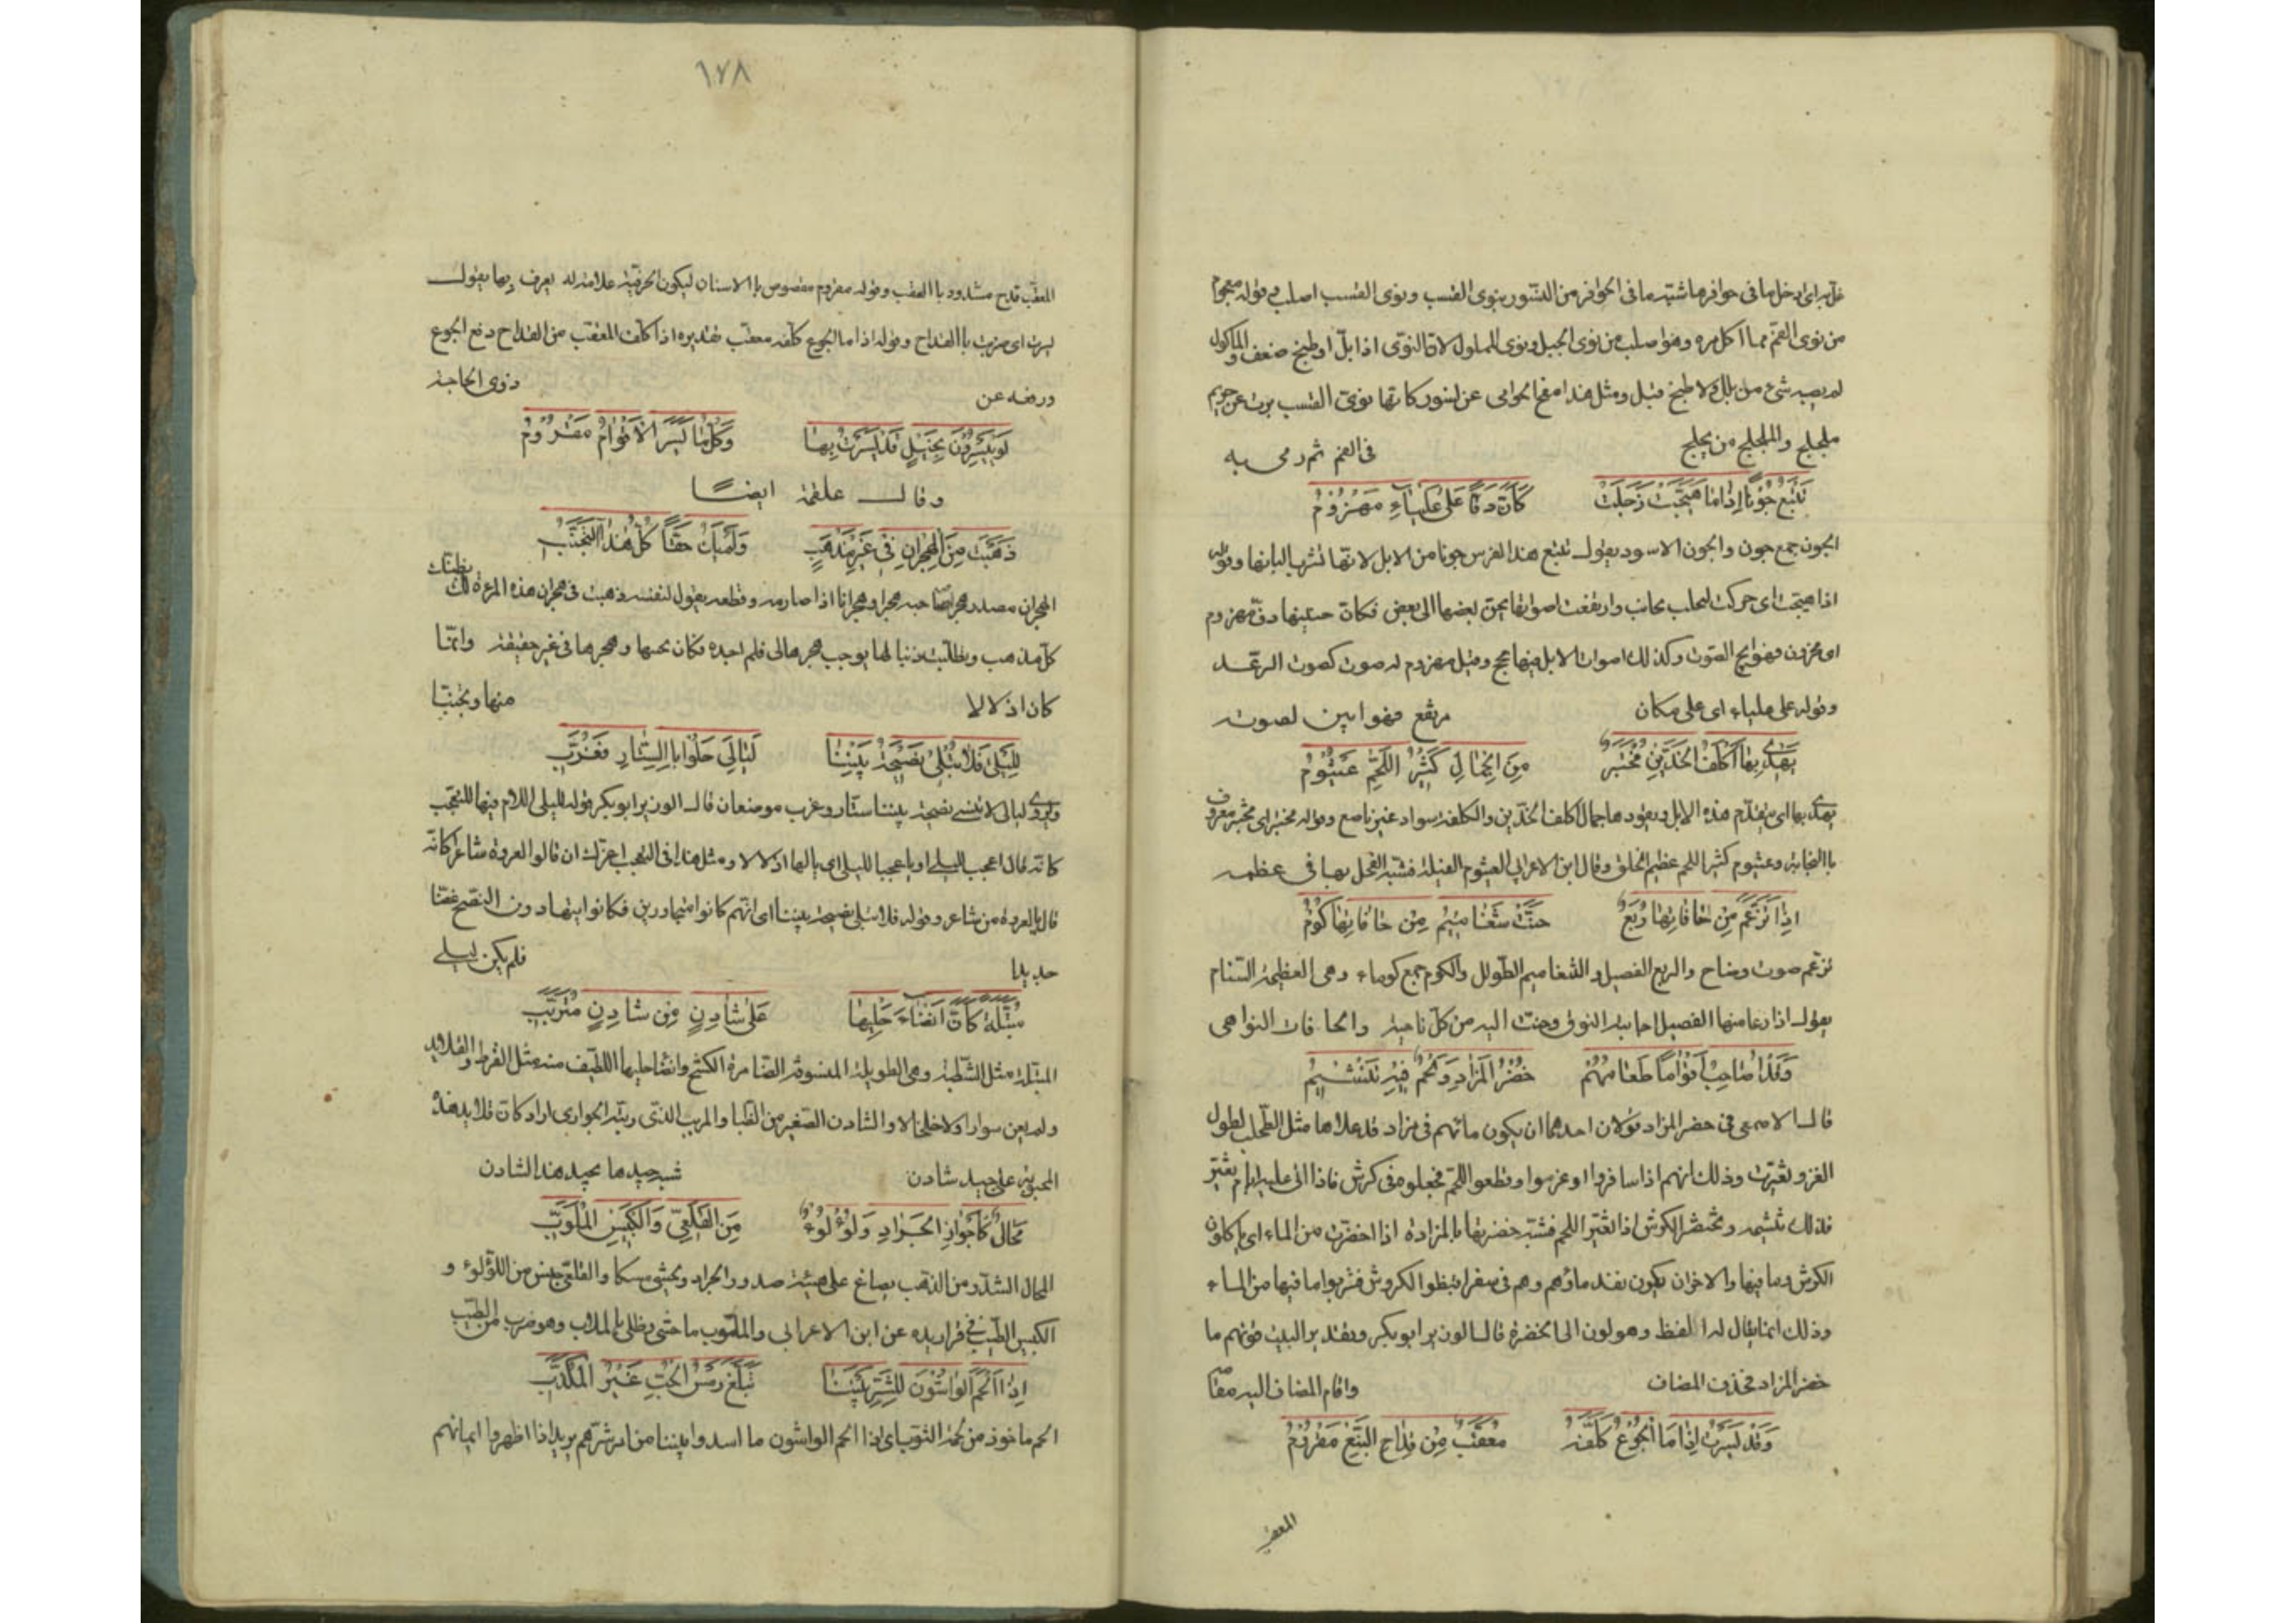 غل به اى ادخل ما فى حوافرها شبه ما فى الحوافر من النسور بنوى القسب ونوى القسب اصلب وقوله معجوم
من نوى العجم مما اكل مره وهو اصلب من نوى الجبل ونوى المملول لان النوى اذا بل او طبخ ضعف والماكول
لم يصبه شئ من بلل ولا طبخ قبل ومثل هذا مفج الحوامى عن نسور كانها نوى القسب برت عن جريم
ملجلج والملجلج من يلجلج فى الفم ثم رمى به
تَتْبَعُ جُونًا اِذَا مَا هُيِّجَتْ زَجَلَتْ كَأَنَّ دُفًّا عَلى عَلْيَاءِ مَهْزُومُ
الجون جمع جون والجون الاسود يقول تتبع هذا الفرس جونا من الابل لانها تشرب البانها وقوله
اذا هيجت اى حركت لتحلب تحانت وارتفعت اصواتها يحن بعضها الى بعض فكان حنينها دف مهزوم
اى مخزوق فهو ابح الصوت وكذلك اصوات الابل فيها بحح وقيل مهزوم له صوت كصوت الرعد
وقوله على علياء اى على مكان مرتفع فهو ابين لصوته
يَهْدِى بِهَا اَكْلَفُ الْخَدَّيْنِ مُخْتَبَرٌ مِنَ الْجِمَالِ كَثِيرُ اللَّحْمِ عَيْثُومُ
يهدى بها اى يتقدم هذه الابل ويقودها جمال اكلف الخدين والكلفة سواد غير ناصع وقوله مختبر اى مجرب معروف
باالنجابة وعيثوم كثير اللحم عظيم الخلق وقال ابن الاعرابى العيثوم الفيلة فشبه الفحل بها فى عظمه
اِذَا تَزَغَّمَ مِنْ حَافَاتِهَا رُبَعٌ حَنَّتْ شَغَامِيمُ مِنْ حَافَاتِهَا كُومُ
تزغم صوت وصاح والربع الفصيل والشغاميم الطوال والكوم جمع كوماء وهى العظيمة السنام
يقول اذا رغا منها الفصيل اجابته النوق وحنت اليه من كل ناحية والحافات النواحى
وَقَدْ اُصَاحِبُ اَقْوَامًا طَعَامُهُمُ خُضْرُ الْمَزَادِ وَلَحْمٌ فِيهِ تَنْشِيمُ
قال الاصمعى فى خضر المزاد قولان احدهما ان يكون ماؤهم فى مزاد قد علاها مثل الطحلب لطول
الغزو لغيرت وذلك انهم اذا سافروا او غزوا وقطعوا اللحم فجعلوه فى كرش فاذا اتى عليه ايام تغير
فذلك تنشيمه وتخضر الكرش اذا تغير اللحم فشبه خضرتها باالمزادة اذا اخضرت من الماء اى ياكلون
الكرش وما فيها والاخران يكون نفد ماؤهم وهم فى سفر افتظوا الكروش فشربوا ما فيها من الماء
وذلك انما يقال له الفظ وهو لون الى الخضرة قال الوزير ابو بكر وتقدير البيت قوتهم ما
خضر المزاد فحذف المضاف واقام المضاف اليه مقامه
وَقَدْ يَسَرْتُ اِذَا مَا الْجُوعُ كُلِّفَهُ مُعَقَّبٌ مِنْ قِدَاحِ النَّبْعِ مَقْرُومُ
المعقب
١٧٨
المعقب قدح مشدود باالعقب وقوله مقروم معضوض باالاسنان ليكون الحز فيه علامة له يعرف بها يقول
يسرت اى ضربت باالقداح وقوله اذا ما الجوع كلفه معقب تقديره اذا كلف المعقب من القداح دفع الجوع
ورفعه عن ذوى الحاجة
لَوْ يَيْسِرُونَ بِخَيْلٍ قَدْ يَسَرْتُ بِهَا وَكُلُّ مَا يَسَرَ الْاَقْوَامُ مَغْرُومُ
وقال علقمة ايضًا
ذَهَبْتَ مِنَ الْهِجْرَانِ فِى غَيْرِ مَذْهَبِ وَلَمْ يَكُ حَقًّا كُلُّ هٰذَا التَّجَنُّبِ
الهجران مصدر هجر صاحبه هجرا وهجرانا اذا صارمه وقطعه يقول لنفسه ذهبت فى هجران هذه المرءة لك
كل مذهب وتطلبت ذنبا لها يوجب هجرها لى فلم اجده فكان تجنبها وهجرها فى غير حقيقة وانما
كان اذلالا منها وتجنبا
لِلَيْلَى فَلَا تُبْلَى نَصِيحَةُ بَيْنِنَا لَيَالِىَ حَلُّوا بِاالسِّتَارِ فَغُرَّبِ
ويروى ليالى لا تبلى نصيحة بيننا ستار وغرب موضعان قال الوزير ابو بكر قوله لليلى اللام فيها للتعجب
كانه قال اعجب لليلى او يا عجبا لليلى اى يالها اذلالا ومثل هذا فى التعجب اعتزلت ان قالوا لعروة شاعر كانه
قال يالعروة من شاعر وقوله فلا تبلى نصيحة بيننا اى انهم كانوا متجاورين فكانوا يتهادون النصح غضا
جديدا فلم يكن ليبلى
مُبَتَّلَةٌ كَاَنَّ اَنْضَاءَ حَلْيِهَا عَلَى شَادِنٍ مِنْ شَادِنٍ مُتَرَبَّبِ
المبتلة مثل الشطبة وهى الطويلة المنسوقة الضامرة الكشح وانضا حليها االلطيف منه مثل القرط والقلائد
ولم يعن سوارا ولا خلخالا والشادن الصغير من الظبا والمربب الذى ربته الجوارى اراد كان قلايد هذه
المحبوبة على جيد شادن شبه جيدها بجيد هذا الشادن
مَحَالٌ كَاَجْوَازِ الْجَرَادِ وَلُؤْلُؤٌ مِنَ الْقَلَعِىِّ وَالْكَبِيسِ الْمُلَوَّبِ
المحال الشذر من الذهب يصاغ على هيئة صدور الجراد ويحشى مسكا والقلعى جنس من اللؤلؤ و
الكبيس الطيب عن ابن الاعرابى والملوب ما حشى وطلى باالملاب وهو ضرب من الطيب
اِذَا اَلْحَمَ الْوَاشُونَ لِلشَّرِّ بَيْنَنَا تَبَلَّغَ رَسُّ الْحُبِّ غَيْرُ الْمُكَذَّبِ
الحم ماخوذ من لحمة الثوب اى اذا الحم الواشون ما اسدوا بيننا من امر شرهم يريد اذا اظهروا ايمانهم